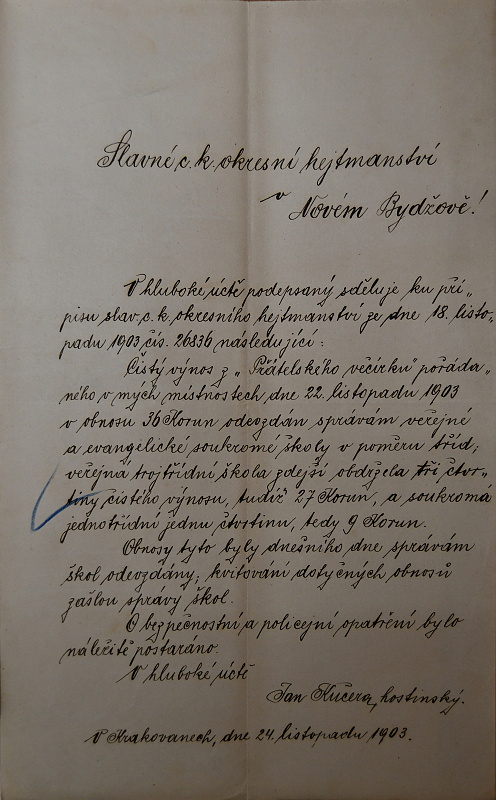 Slavné c. k. okresní hejtmanství
v
Novém Bydžově!
V hluboké úctě podepsaný sděluje ku pří„
pisu slav. c. k. okresního hejtmanství ze dne 18. listo-
padu 1903 čís. 26836 následující:
Čistý výnos z „Přátelského večírku" pořáda„
ného v mých místnostech dne 22. listopadu 1903
v obnosu 36 Korun odevzdán správám veřejné
a evangelické soukromé školy v poměru tříd;
veřejná trojtřídní škola zdejší obdržela tři čtvr„
tiny čistého výnosu, tudíž 27 Korun, a soukromá
jednotřídní jednu čtvrtinu, tedy 9 Korun.
Obnosy tyto byly dnešního dne správám
škol odevzdány; kvitování dotyčných obnosů
zašlou správy škol.
O bezpečnostní a policejní opatření bylo
náležitě postaráno.
V hluboké úctě
Jan Kučera, hostinský.
V Krakovanech, dne 24. listopadu 1903.